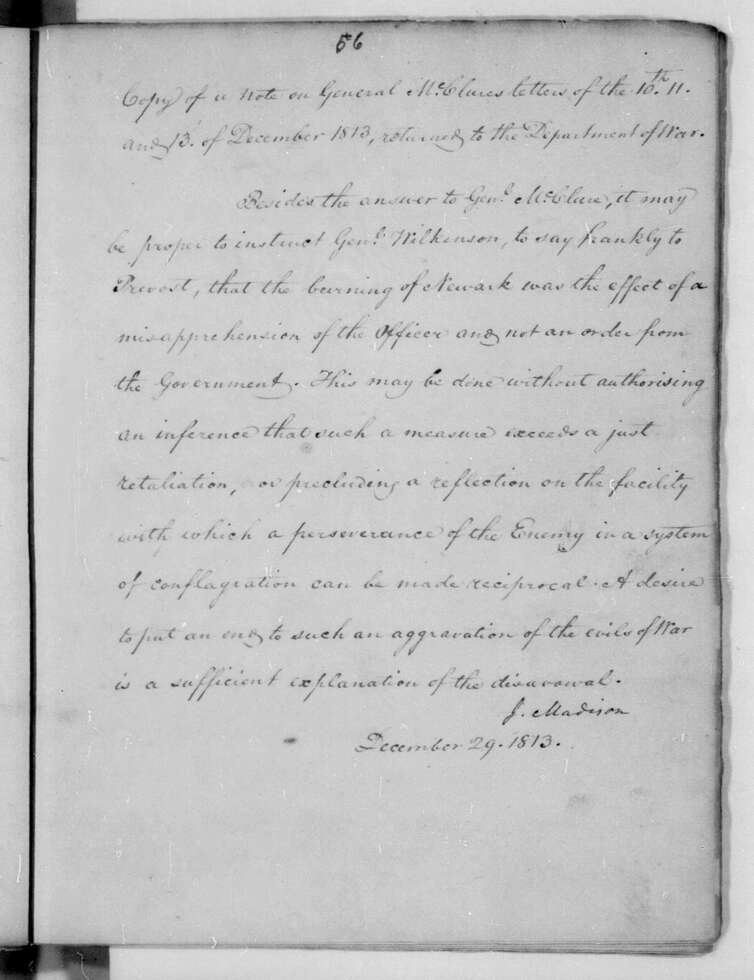 56
Copy of a note on General McClures letters of the 10th. 11.
and 13. of December 1813, returned to the Department of War.
Besides the answer to Genl. McClure, it may
be proper to instruct Genl. Wilkinson, to say frankly to
Prevost, that the burning of Newark was the effect of a
misapprehension of the Officer and not an order from
the Government. This may be done without authorising
an inference that such a measure exceeds a just
retaliation, or precluding a reflection on the facility
with which a perseverance of the Enemy in a system
of conflagration can be made reciprocal. A desire
to put an end to such an aggravation of the evils of War
is a sufficient explanation of the disavowal.
J. Madison
December 29. 1813.